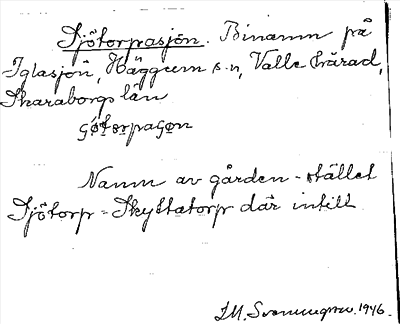 Sjötorpasjön. Binamn på
Iglasjön, Häggum s-n, Valle härad,
Skaraborgs län
Namn av gården-stället
Sjötorp-Skyttatorp där intill
1946.